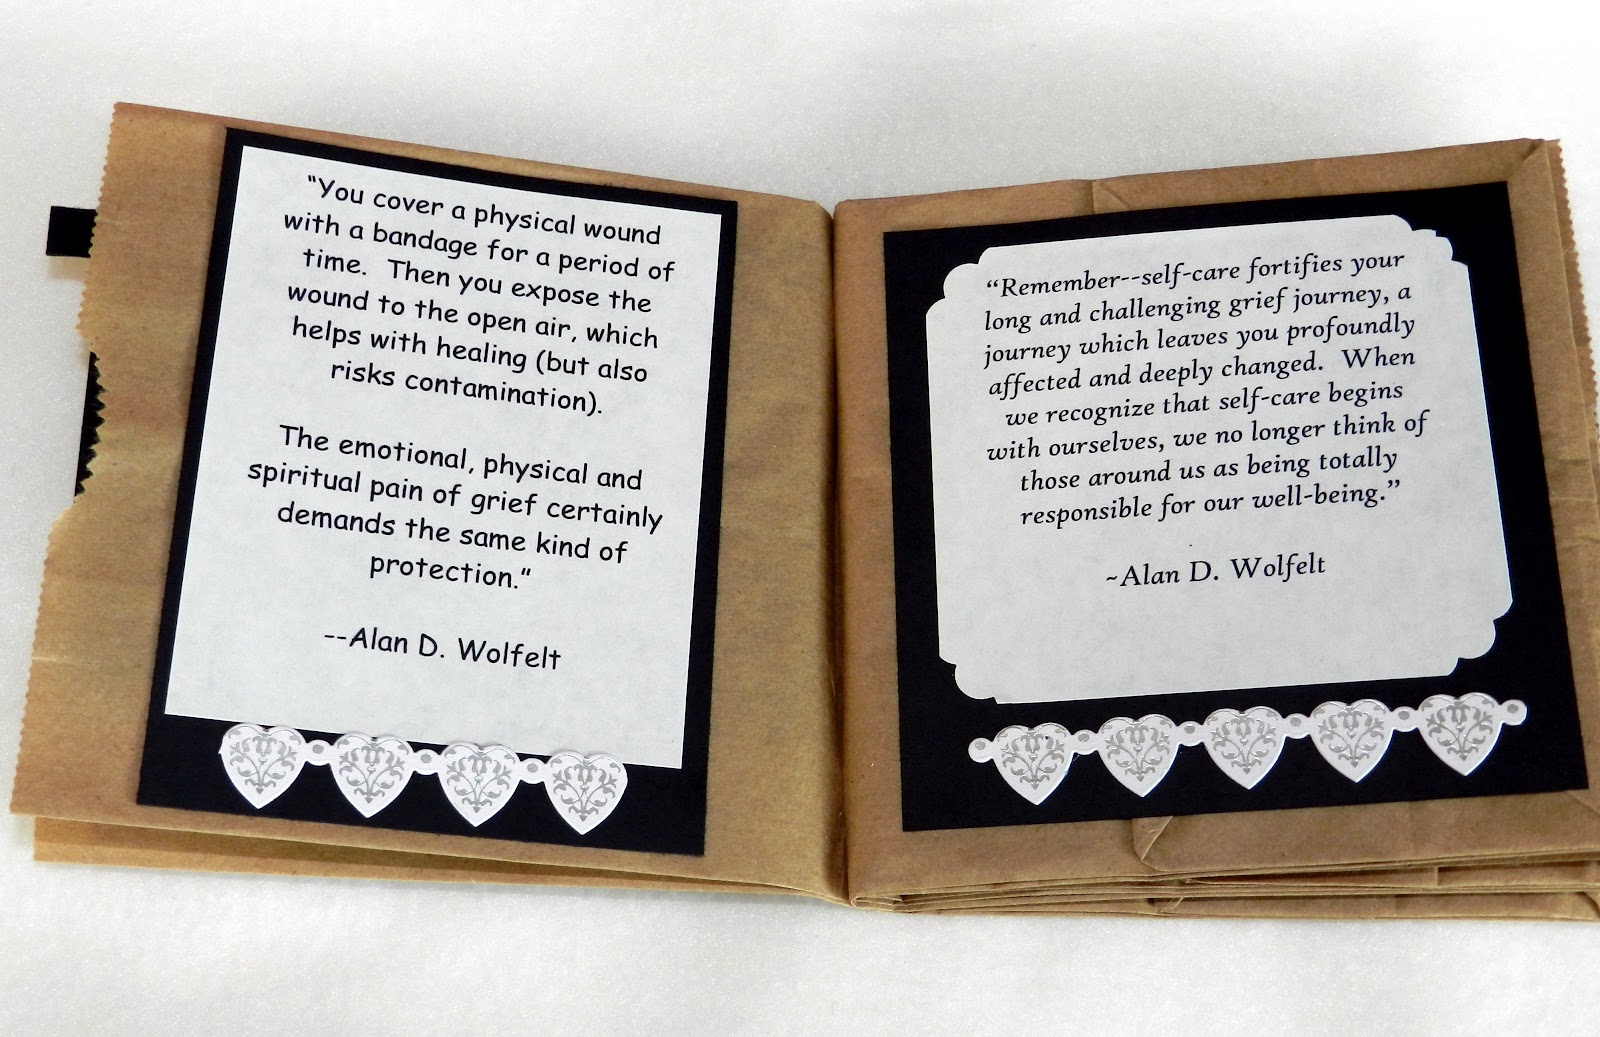 "You cover a physical wound
with a bandage for a period of
time.  Then you expose the
wound to the open air, which
helps with healing (but also
risks contamination).
The emotional, physical and
spiritual pain of grief certainly
demands the same kind of
protection."
--Alan D. Wolfelt
“Remember--self-care fortifies your
long and challenging grief journey, a
journey which leaves you profoundly
affected and deeply changed.  When
we recognize that self-care begins
with ourselves, we no longer think of
those around us as being totally
responsible for our well-being.”
~Alan D. Wolfelt